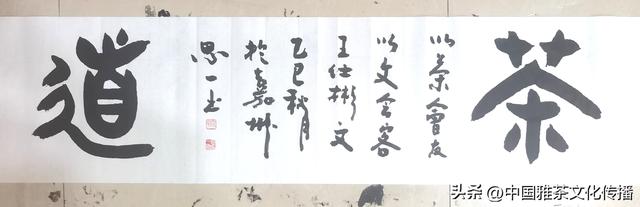 茶
以茶會友
以文会客
王仕彬文
乙巳秋月
於嘉州
思一
道
头条 @中国雅茶文化传播